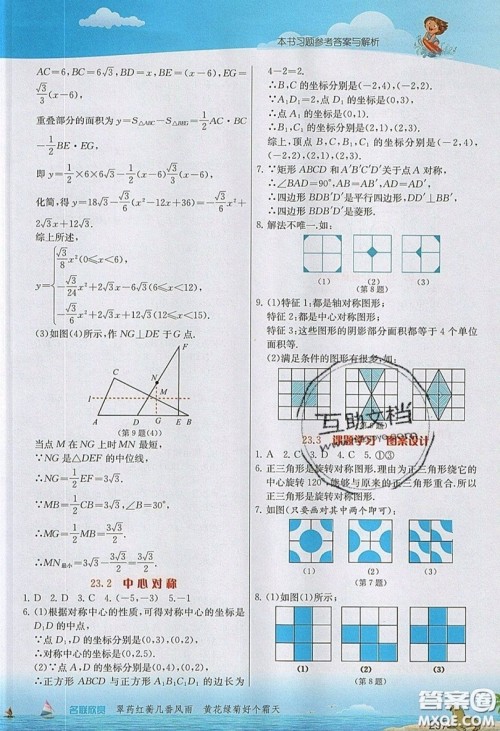 本书习题参考答案与解析
AC=6, BC=6√3, BD=x, BE=1/2x, EG=
√3/3(x-6),
重叠部分的面积为 y=S△ABC-S△BDE=1/2AC·BC-
1/2BE·EG,
即 y=1/2×6×6√3-1/2x×√3/3(x-6),
化简,得 y=18√3-√3/6(x²-12x+36)=-√3/6x²+
2√3x+12√3.
综上所述,
y={√3/8x²(0≤x<6),
√3/24x²+2√3x-6√3(6≤x<12),
-√3/6x²+2√3x+12√3(12≤x≤15).
(3)如图(4)所示,作 NG⊥DE 于 G 点.
C
F
N
M
A
D
G
B
E
(第9题(4))
当点 M 在 NG 上时 MN 最短,
∵NG 是△DEF 的中位线,
∴NG=1/2EF=√3.
∵MB=1/2CB=3√3,∠B=30°,
∴MG=1/2MB=3√3/2,
∴MN最小=3√3-3√3/2=3√3/2.
23.2 中心对称
1. D 2. D 3. C 4. (-5,-3) 5. -1
6. (1)根据对称中心的性质,可得对称中心的坐标是
D₁D 的中点,
∵点 D₁,D 的坐标分别是(0,3),(0,2),
∴对称中心的坐标是(0,2.5).
(2)∵点 A,D 的坐标分别是(0,4),(0,2),
∴正方形 ABCD 与正方形 A₁B₁C₁D₁ 的边长都是
4-2=2.
∴B,C 的坐标分别是(-2,4),(-2,2).
∵A₁D₁=2,点 D₁ 的坐标是(0,3),
∴点 A₁ 的坐标是(0,1).
∴B₁,C₁ 的坐标分别是(2,1),(2,3),
综上,顶点 B,C,B₁,C₁ 的坐标分别是(-2,4),
(-2,2),(2,1),(2,3).
7. ∵矩形 ABCD 和 A'B'C'D' 关于点 A 对称,
∴∠BAD=90°,AB=AB',AD=AD',
∴四边形 BDB'D' 是平行四边形,DD'⊥BB',
∴四边形 BDB'D' 是菱形.
8. 解法不唯一.如:
(1) (2) (3)
(第8题)
9. (1)特征1:都是轴对称图形;
特征2:都是中心对称图形;
特征3:这些图形的阴影部分面积都等于4个单位
面积等.
(2)满足条件的图形有很多,如:
互助文档
23.3 课题学习 图案设计
1. B 2. A 3. C 4. C 5. ①③
6. 正三角形是旋转对称图形.理由为正三角形绕它的
中心旋转120°,能够与原来的正三角形重合.所以正
三角形是旋转对称图形.
7. 如图(只要画对其中一个即可)
(1) (2) (3)
(第7题)
8. (1)如图(1)所示,
(1) (2)
(第8题)
名联欣赏 翠药红蘅几番风雨 黄花绿菊好个霜天
答案圈
MXQE.COM